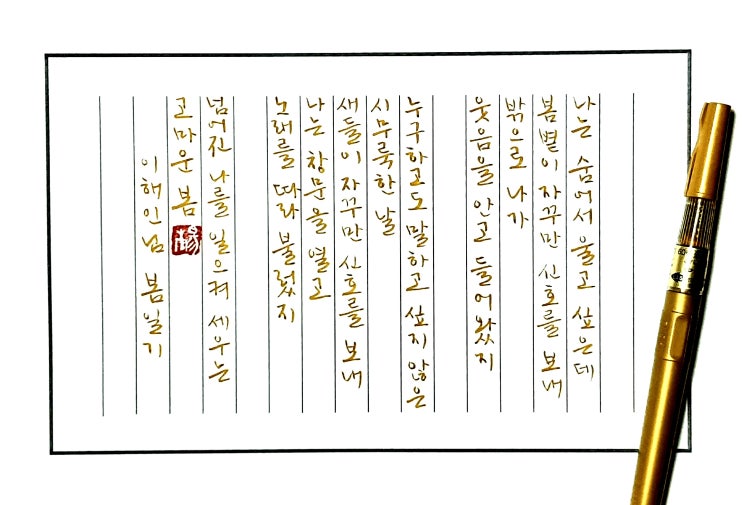 나는 숨어서 울고 싶은데
봄볕이 자꾸만 신호를 보내
밖으로 나가
웃음을 안고 들어왔지
누구하고도 말하고 싶지 않은
시무룩한 날
새들이 자꾸만 신호를 보내
나는 창문을 열고
노래를 따라 불렀지
넘어진 나를 일으켜 세우는
고마운 봄
이해인님 봄일기